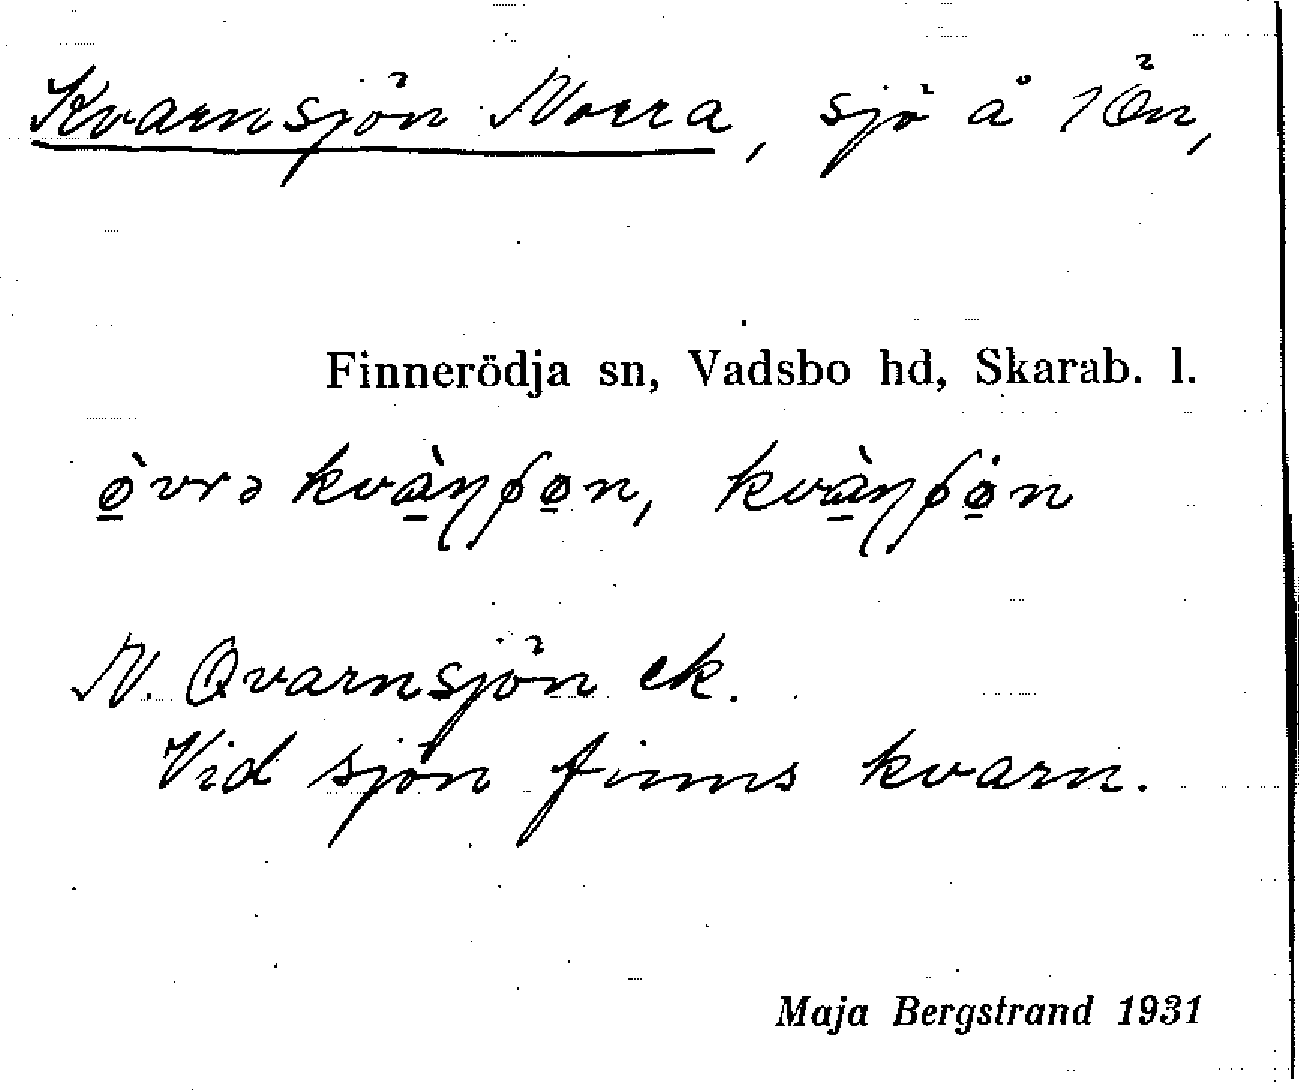 Kvarnsjön Norra, sjö å 1 Ön,
Finnerödja sn, Vadsbo hd, Skarab. l.
N. Qvarnsjön ek.
Vid sjön finns kvarn.
Maja Bergstrand 1931